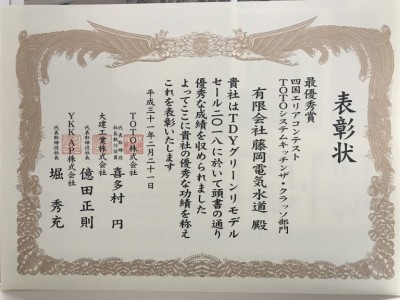 表彰状
最優秀賞
四国エリアコンテスト
TOTOシステムキッチンザ・クラッソ部門
有限会社藤岡電気水道 殿
貴社はTDYグリーンリモデル
セール二〇一八に於いて頭書の通り
優秀な成績を収められました
よってここに貴社の優秀な功績を称え
これを表彰いたします
平成三十一年二月二十一日
TOTO株式会社
喜多村 円
大建工業株式会社
代表取締役社長
億田正則
YKKAP株式会社
代表取締役社長
堀 秀充